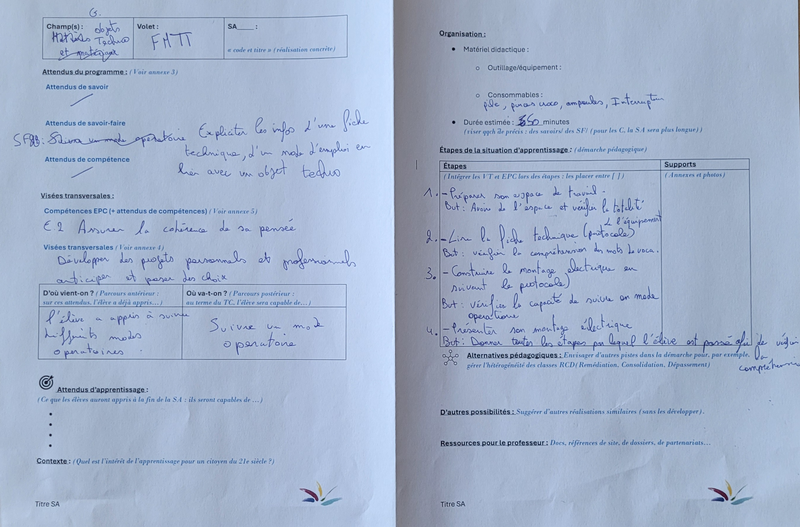 G.
Champ(s) : objets
Matières Techno
et
Volet :
FMTT
SA____ :
« code et titre » (réalisation concrète)
Attendus du programme : (Voir annexe 3)
Attendus de savoir
Attendus de savoir-faire
Expliciter les infos d'une fiche
technique, d'un mode d'emploi en
lien avec un objet techno
Attendus de compétence
Visées transversales :
Compétences EPC (+ attendus de compétences) (Voir annexe 5)
E2 Assurer la cohérence de sa pensée
Visées transversales (Voir annexe 4)
Développer des projets personnels et professionnels
anticiper et poser des choix
D'où vient-on ? (Parcours antérieur :
sur ces attendus, l'élève a déjà appris…)
l'élève a appris à suivre
différents modes
opératoires
Où va-t-on ? (Parcours postérieur :
au terme du TC, l'élève sera capable de…)
Suivre un mode
opératoire
Attendus d'apprentissage :
(Ce que les élèves auront appris à la fin de la SA : ils seront capables de …)
Contexte : (Quel est l'intérêt de l'apprentissage pour un citoyen du 21e siècle ?)
Titre SA
Organisation :
Matériel didactique :
Outillage/équipement :
Consommables :
pile, pinces croco, ampoules, Interrupteur
Durée estimée : 50 minutes
(viser qqch de précis : des savoirs/ des SF/ (pour les C, la SA sera plus longue))
Étapes de la situation d'apprentissage : (démarche pédagogique)
Étapes
(Intégrer les VT et EPC lors des étapes : les placer entre [ ])
Supports
(Annexes et photos)
1. - Préparer son espace de travail.
But : Avoir de l'espace et vérifier la totalité
de l'équipement
2. - Lire la fiche technique (protocole)
But : vérifier la compréhension des mots de voca.
3. - Construire le montage électrique en
suivant le protocole)
But : vérifier la capacité de suivre un mode
opératoire
4. - Présenter son montage électrique
But : Donner toutes les étapes par lequel l'élève est passé afin de vérifier
la
compréhension
Alternatives pédagogiques : Envisager d'autres pistes dans la démarche pour, par exemple,
gérer l'hétérogénéité des classes RCD(Remédiation, Consolidation, Dépassement)
D'autres possibilités : Suggérer d'autres réalisations similaires (sans les développer).
Ressources pour le professeur : Docs, références de site, de dossiers, de partenariats…
Titre SA